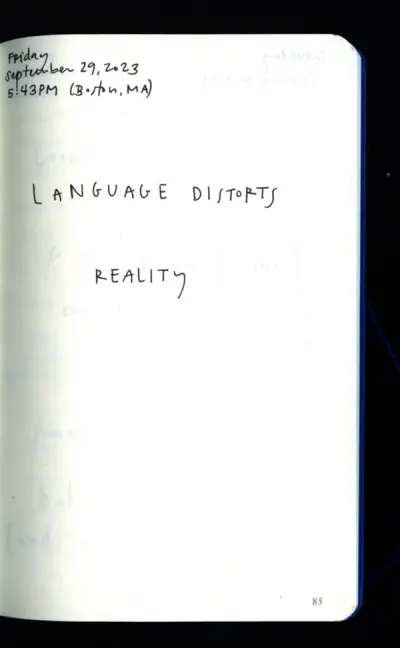 Friday
September 29, 2023
5:43PM (Boston, MA)
LANGUAGE DISTORTS
REALITY
85